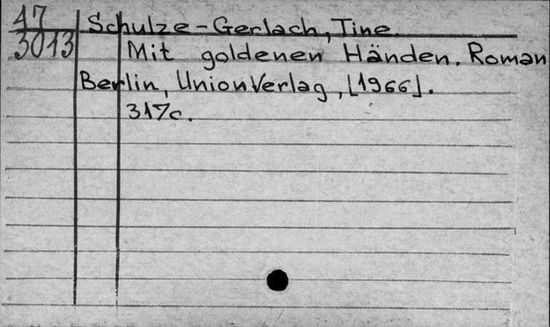 47 Schulze-Gerlach, Tine.
3013 Mit goldenen Händen. Roman
Berlin, Union Verlag, [1966].
317c.